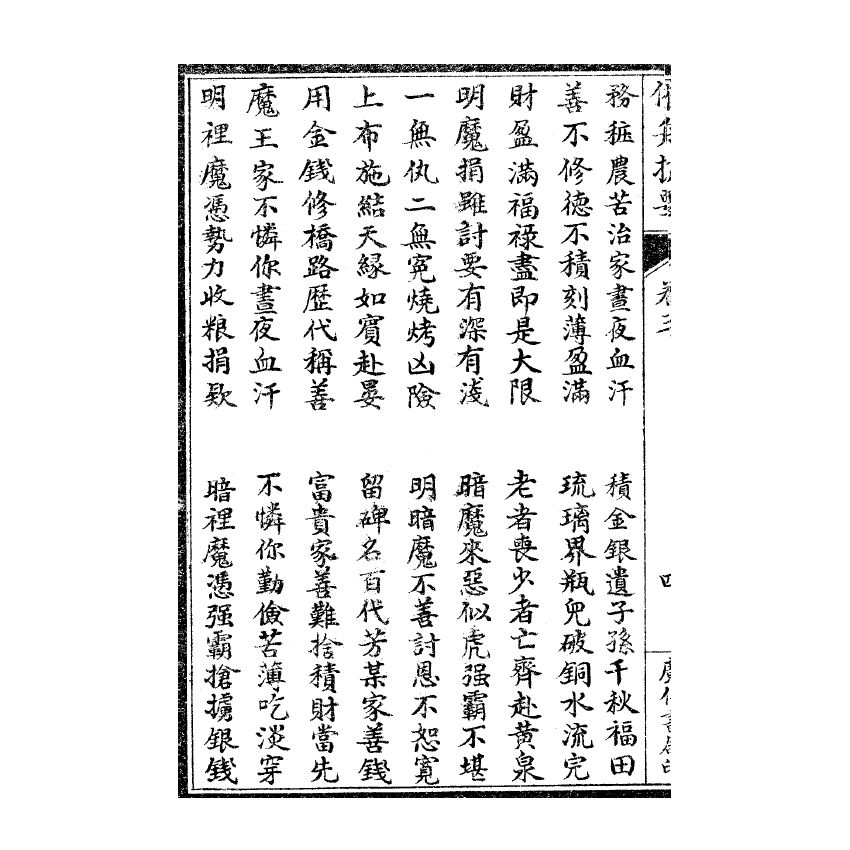 務粧農苦治家晝夜血汗 積金銀遺子孫千秋福田
善不修德不積刻薄盈滿 琉璃界瓶兜破銅水流完
財盈滿福禄盡即是大限 老者喪少者亡齊赴黄泉
明魔捐雖討要有深有淺 暗魔來惡似虎强霸不堪
一無仇二無寃燒烤凶險 明暗魔不善討恩不恕寛
上布施結天緣如賓赴晏 留碑名百代芳某家善錢
用金錢修橋路歷代稱善 富貴家善難捨積財當先
魔王家不憐你晝夜血汗 不憐你勤儉苦薄吃淡穿
明裡魔憑勢力收粮捐欵 暗裡魔憑强霸搶擄銀錢